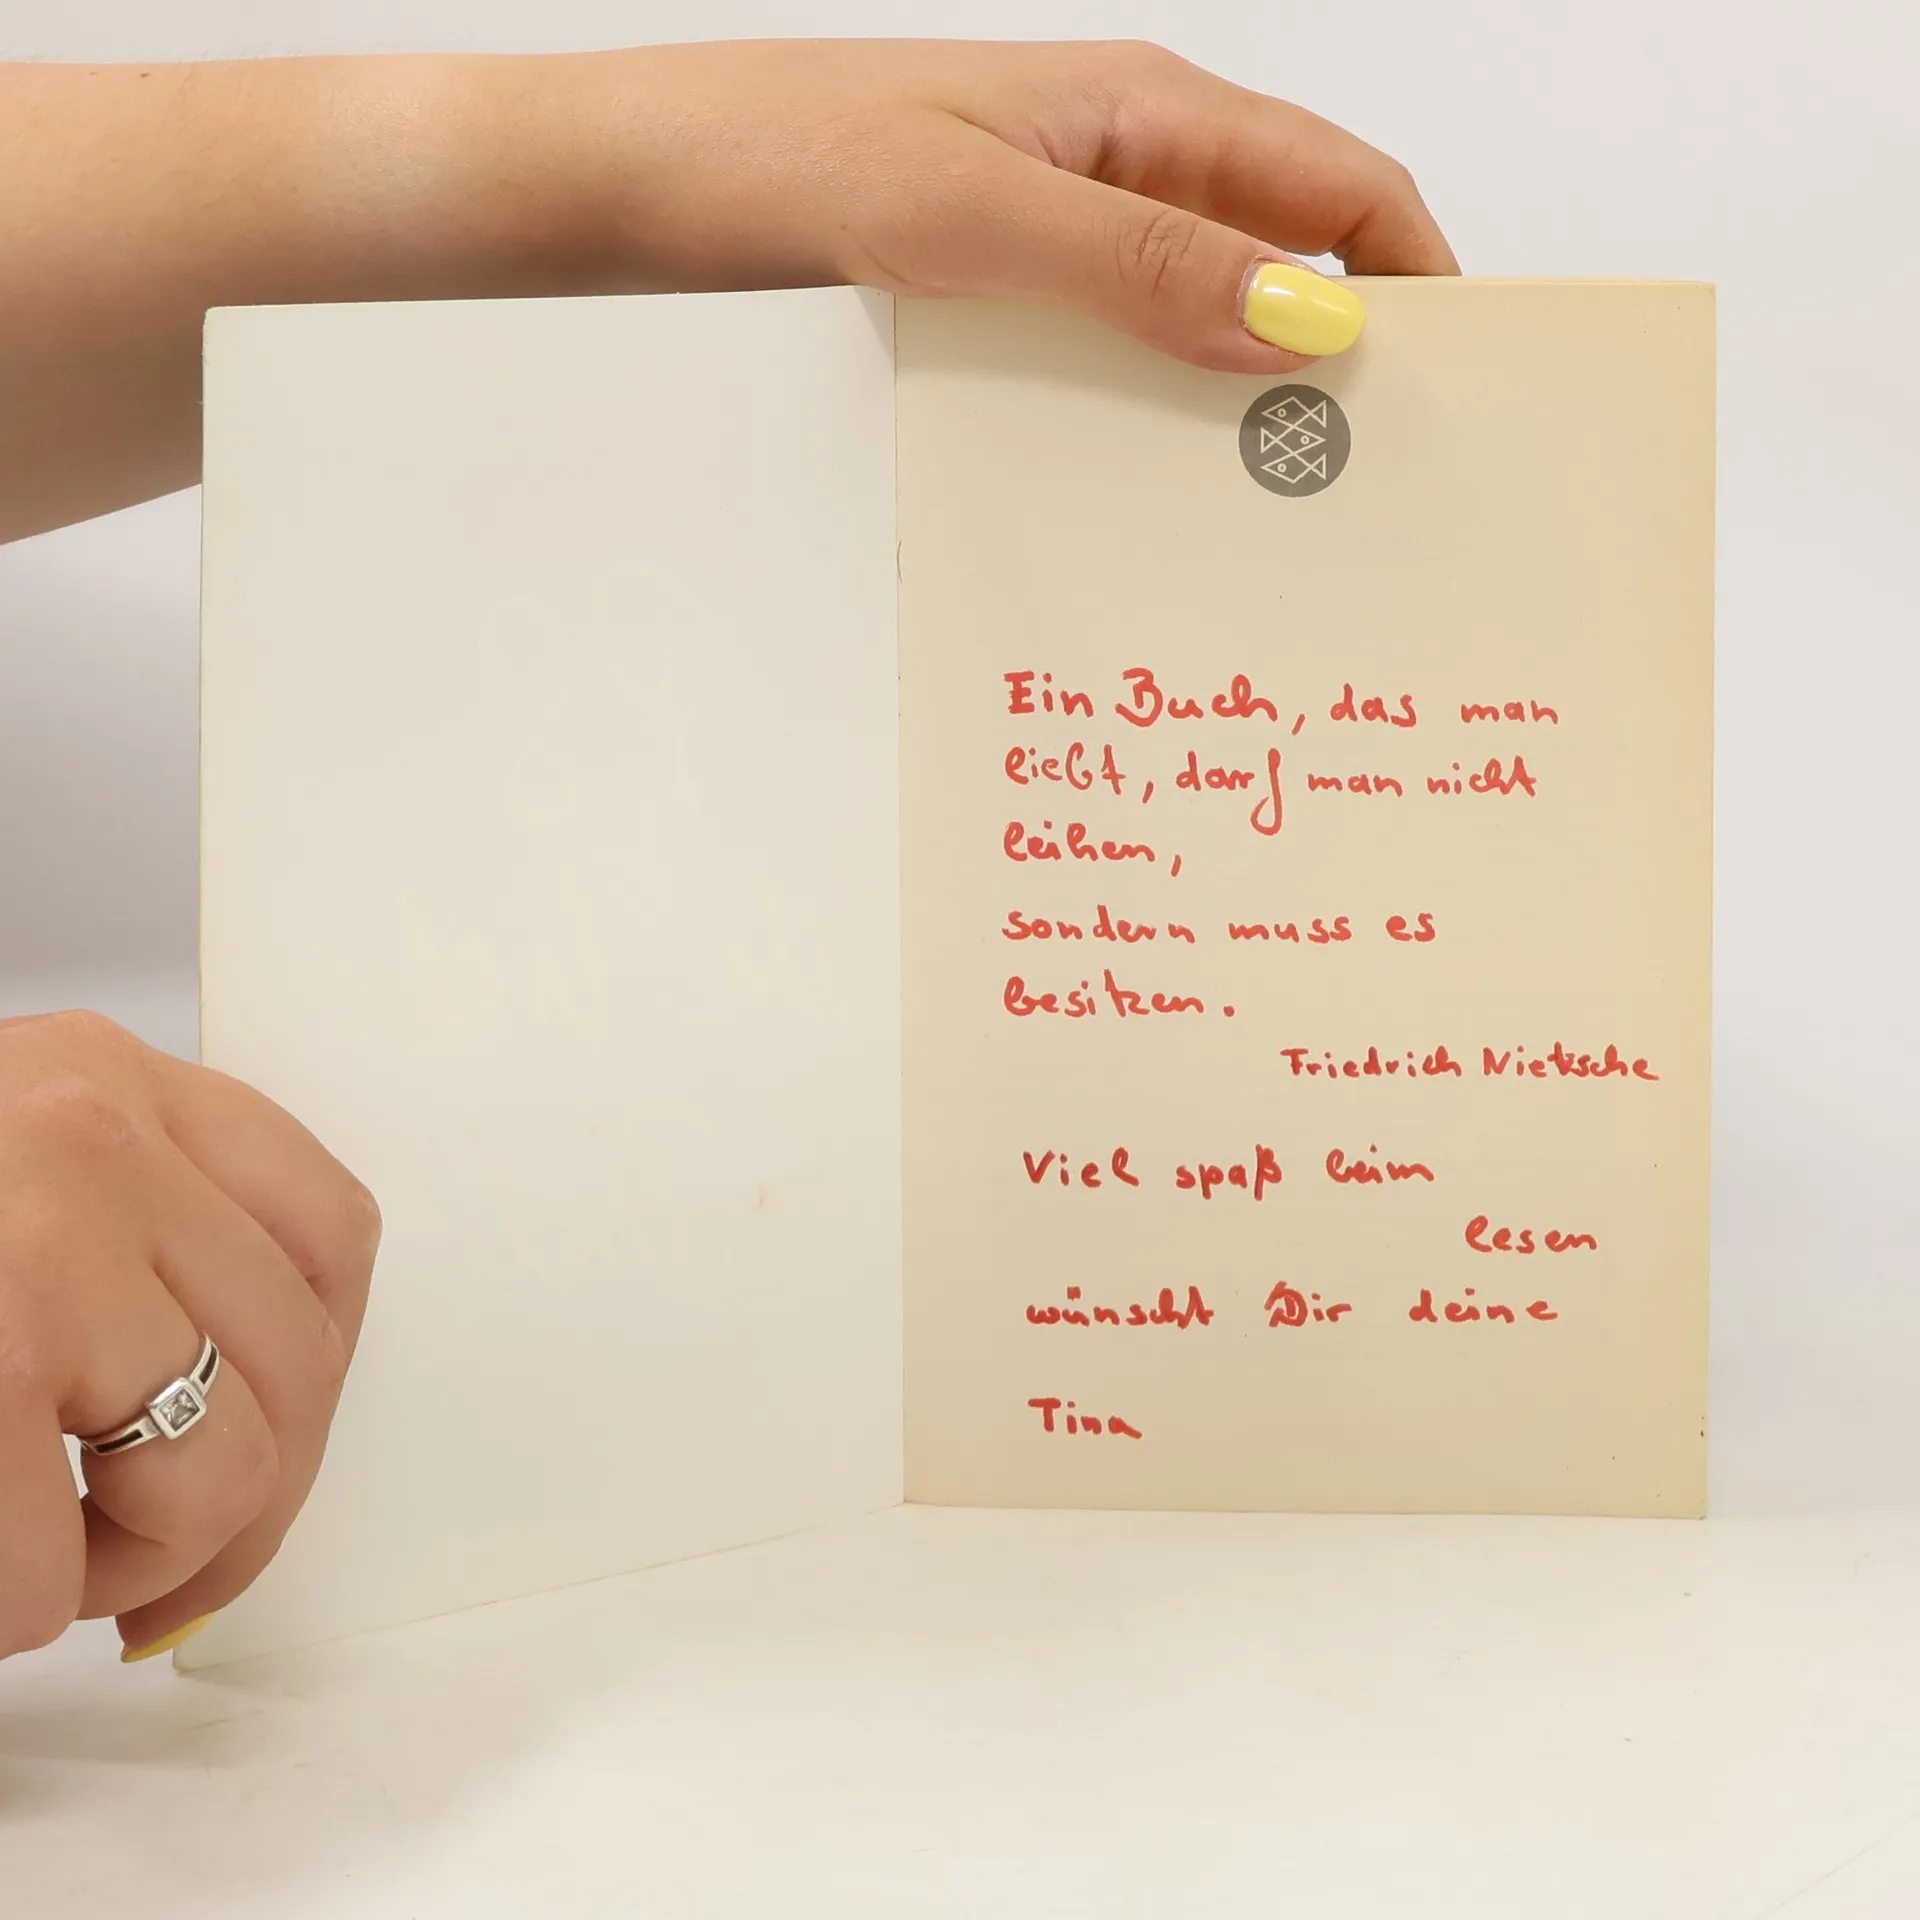 Ein Buch, das man
liebt, darf man nicht
leihen,
sondern muss es
besitzen.
Friedrich Nietzsche
Viel spaß beim
lesen
wünscht Dir deine
Tina